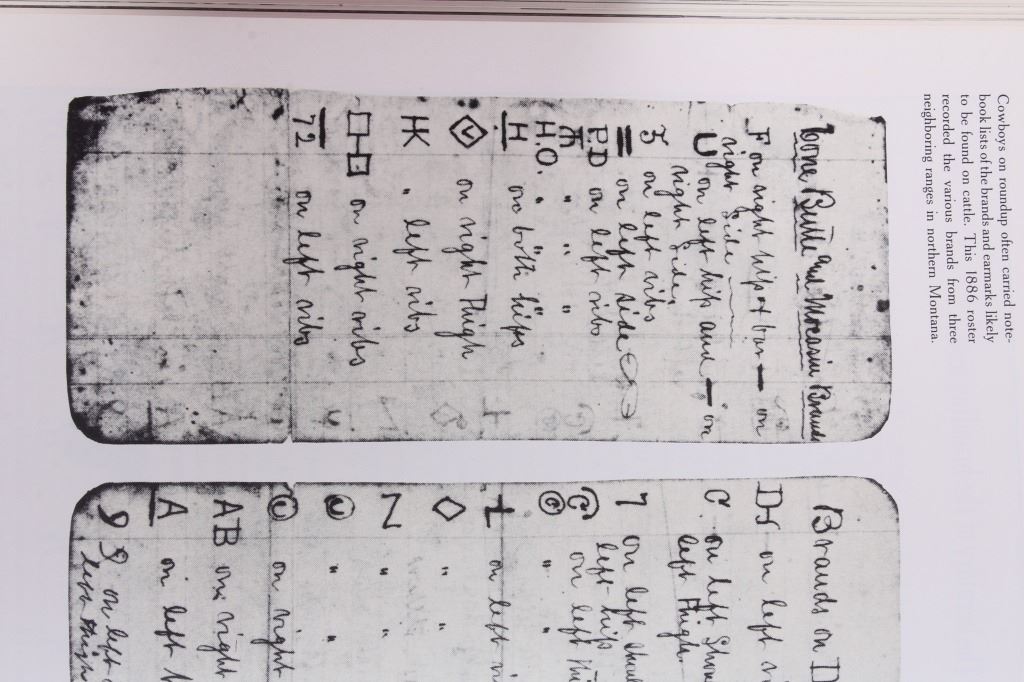 Cowboys on roundup often carried note-
book lists of the brands and earmarks likely
to be found on cattle. This 1886 roster
recorded the various brands from three
neighboring ranges in northern Montana.
Bone Butte and Mocasin Brands
F on right hip & bar — on
right side
U on left hip and — on
right side
on left ribs
on left side
P.D on left ribs
" " "
H.O. " "
H on both hips
on right Thigh
HK " left ribs
on right ribs
72 on left ribs
Brands on D
on left
C. on left
left thigh
7 on left
left hip
C on left
© " "
on left
◇ " "
N " "
U " "
U on right
AB on right
A on left
on left
left